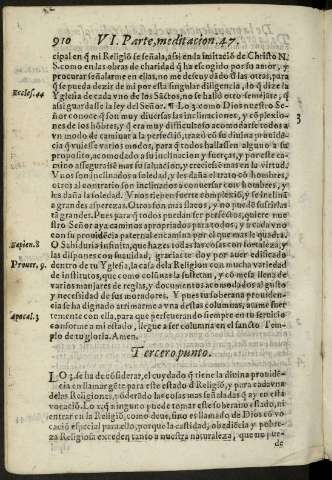 910 VI. Parte, meditacion. 47.
cipal en q̃ mi Religiõ se señala, assi en la imitaciõ de Christo N.
S. como en las obras de charidad q̃ ha escogido por su amor, y
procurar señalarme en ellas, no me descuydãdo ẽ las otras, para
q̃ se pueda dezir de mi por esta singular diligencia, lo q̃ dize la
Eccles. 44
Yglesia de cada vno de los Sãctos, no se hallò otro semejãte, q̃
assi guardasse la ley del Señor. ¶ Lo 3. como Dios nuestro Señor
conoce q̃ son muy diuersas las inclinaciones, y cõplexiones
de los hõbres, y q̃ era muy dificultoso acomodarse todos a
vn modo de caminar a la perfecciõ, trazò cõ su diuina prouidẽcia
q̃ vuiesse varios modos, para q̃ todos hallassen alguno a su
proposito, acomodado a su inclinacion y fuerças, y por este camino
assegurassen mas su saluacion, y creciessẽ mas en la virtud.
Vnos son inclinados a soledad, y les daña el trato cõ hombres,
otros al contrario son inclinados a conuersar con hombres, y
les daña la soledad. Vnos tienen fuerte complexiõ, y se inclinã
a grandes asperezas. Otros son mas flacos, y no puedẽ sufrirlas
tã grandes. Pues para q̃ todos puedan ser perfectos, quiere nuestro
Señor aya caminos apropriados para todos, y trae a cada vno
con su prouidẽcia paternal encamina por el que mas le quadra.
Sapien. 8
O Sabiduria infinita, que hazes todas las cosas con fortaleza, y
las dispones con suauidad, gracias te doy por auer edificado
Prouer. 9.
dentro de tu Yglesia, la casa de la Religion con mucha variedad
de institutos, que como colũnas la sustentan, y cõ mesa llena de
varios manjares de reglas, y documentos acomodados al gusto
y necessidad de sus moradores. Y pues tu soberana prouidencia
se ha dignado arrimarme a vna de estas columnas, asame fuertemente
Apocal. 3
con ella, para que perseuerando siempre en tu seruicio
conforme a mi estado, llegue a ser columna en el sancto Templo
de tu gloria. Amen.
Tercero punto.
LO 3. se ha de cõsiderar, el cuydado q̃ tiene la diuina prouidẽcia
en llamar gẽte para este estado d̃ Religiõ, y para cada vna
de las Religiones, põderãdo las cosas mas señaladas q̃ ay en esta
vocaciõ. Lo 1. q̃ ninguno puede tomar este soberano estado, ni
entrar en la Religiõ, como deue, sino es llamado de Dios cõ vocaciõ
especial para ello, porque la castidad, obediẽcia y pobreza
Religiosa exceden tanto a nuestra naturaleza, que no puede